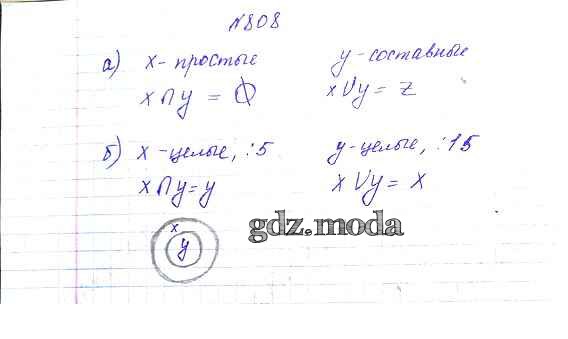 №808
а) x - простые y - составные
x ∩ y = ∅ x ∪ y = Z
б) x - целые, :5 y - целые, :15
x ∩ y = y x ∪ y = x
x
y
gdz.moda